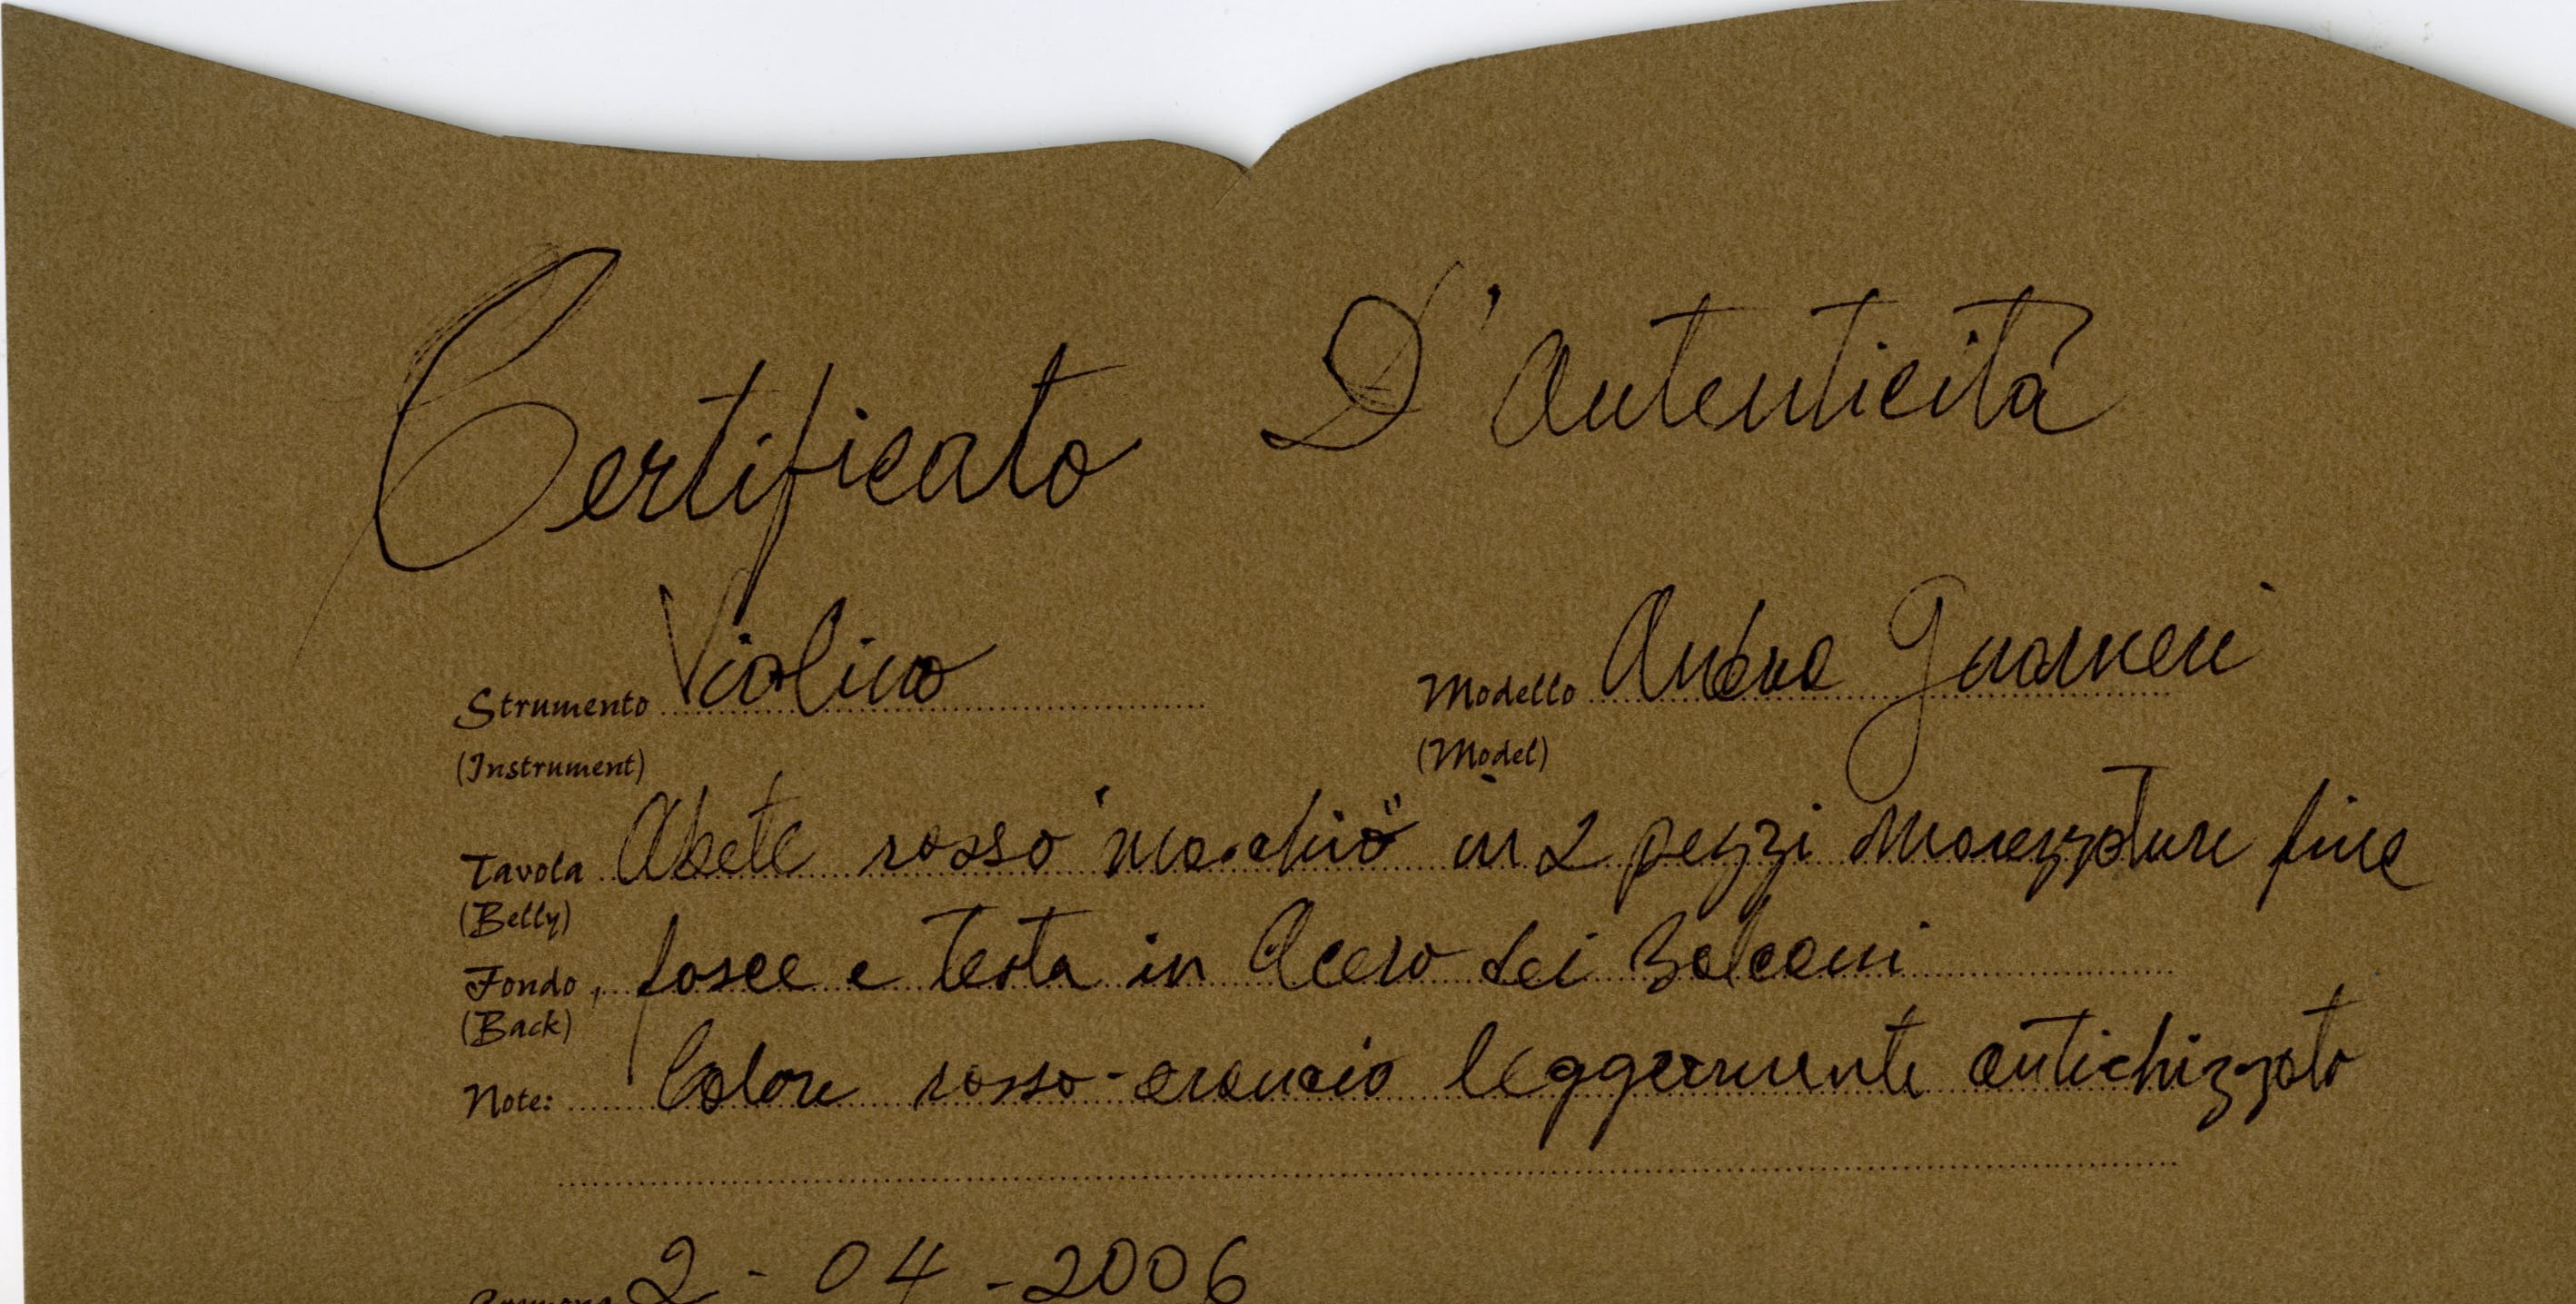 Certificato D'Autenticità
Strumento Violino Modello Andrea Guarneri
(Instrument) (Model)
Tavola Abete rosso "maschio" in 2 pezzi Marezzature fine
(Belly)
Fondo, fasce e testa in Acero dei Balcani
(Back)
Note: Colore rosso-arancio leggermente antichizzato
Cremona 2-04-2006